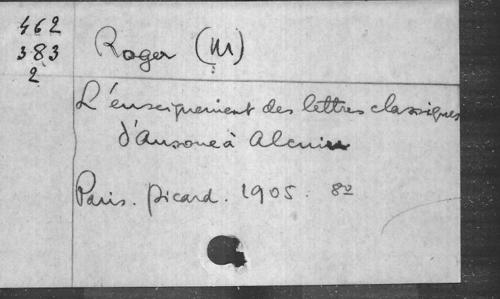 462
383
2
Roger (M)
L'enseignement des lettres classiques
d'Ausone à Alcuin
Paris. Picard. 1905. 8º